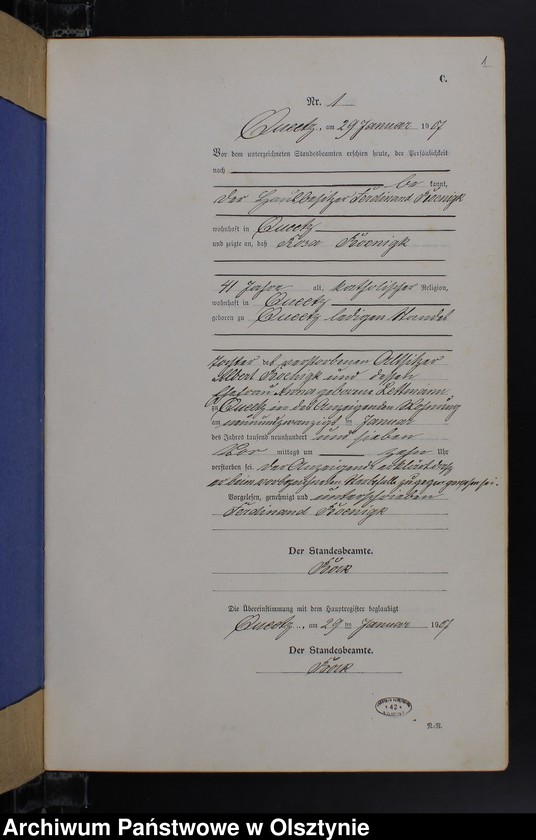 1
C.
Nr. 1
Queetz, am 29 Januar 1907
Vor dem unterzeichneten Standesbeamten erschien heute, der Persönlichkeit
nach
be kannt,
der Ferdinand Koenigk
wohnhaft in Queetz
und zeigte an, daß Rosa Koenigk
41 Jahre alt, katholischer Religion,
wohnhaft in Queetz
geboren zu Queetz ledigen Standes
Tochter des verstorbenen Altsitzer
Albert Koenigk und dessen
Ehefrau Anna geborene Lettmann
zu Queetz in des Anzeigenden Wohnung
am neunundzwanzigsten Januar
des Jahres tausend neunhundert und sieben
Vor mittags um zehn Uhr
verstorben sei. Der Anzeigende erklärt, daß
er beim Sterbefalle zugegen gewesen sei.
Vorgelesen, genehmigt und unterschrieben
Ferdinand Koenigk
Der Standesbeamte.
Die Übereinstimmung mit dem Hauptregister beglaubigt
Queetz, am 29 ten Januar 1907
Der Standesbeamte.
Archiwum Państwowe w Olsztynie